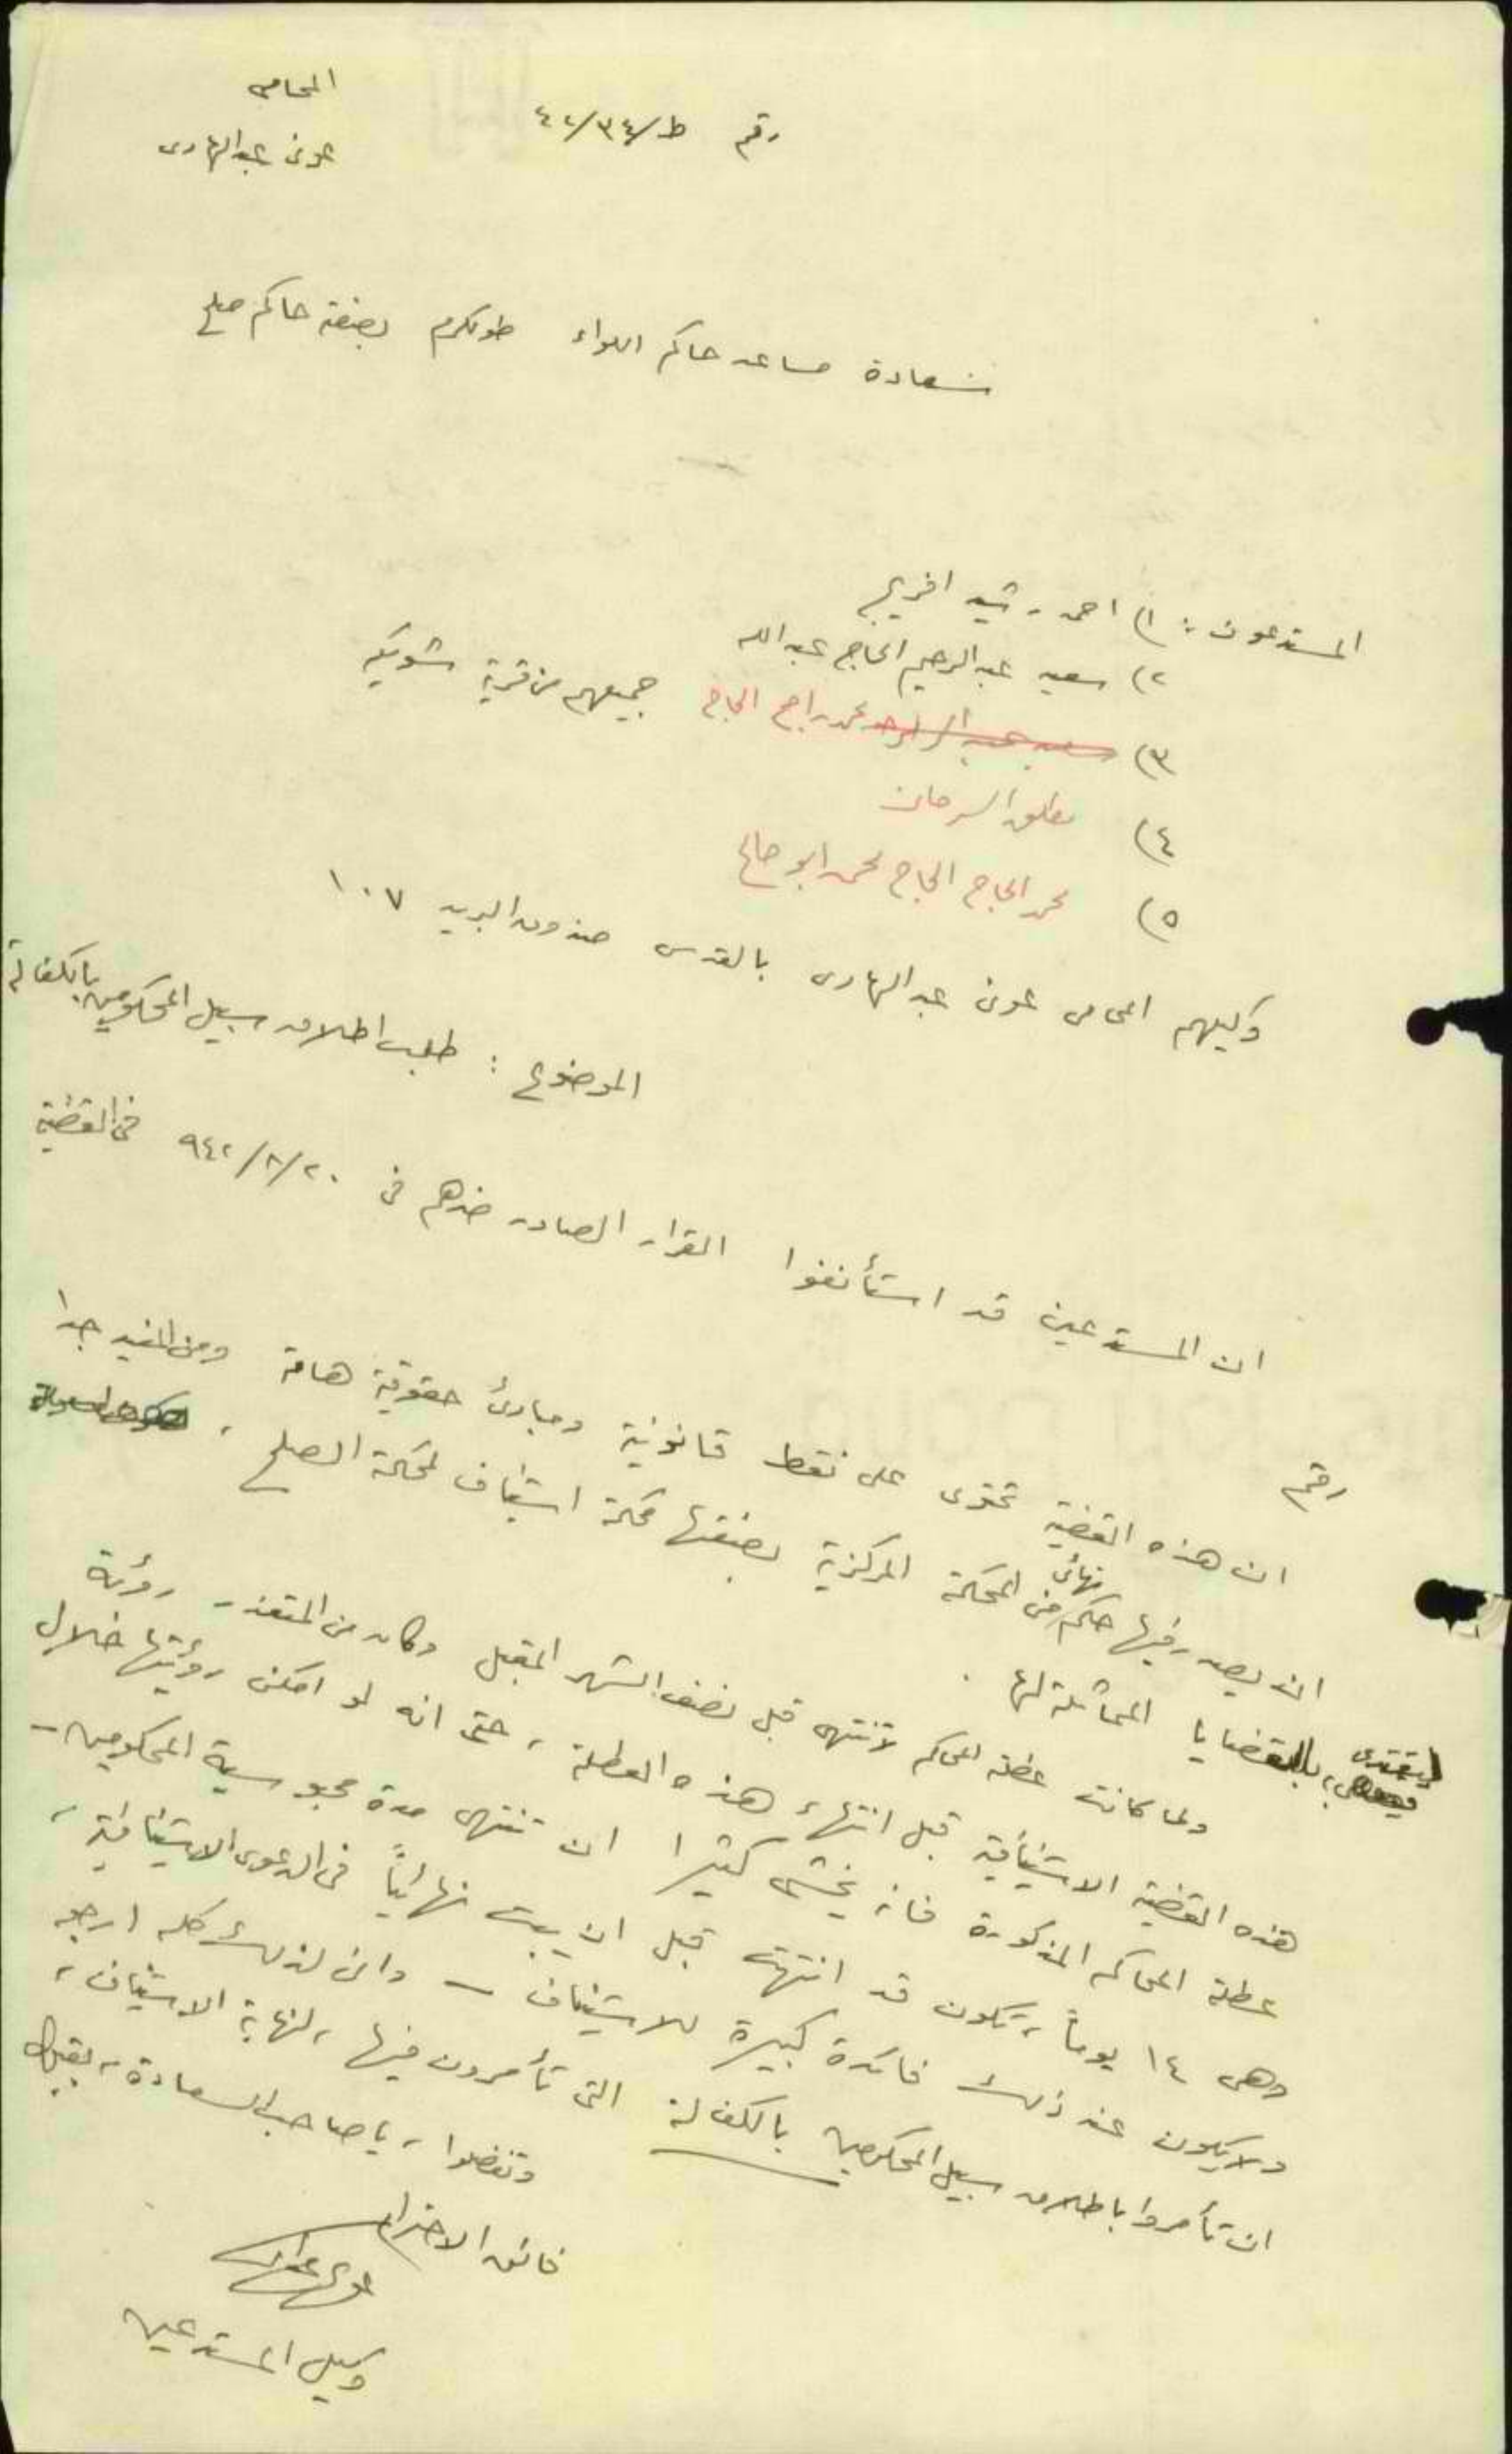 المحامي
عوني عبد الهادي
رقم ط/٣٤/٤٢
سعادة مساعد حاكم اللواء طولكرم بصفته حاكم صلح
المستدعون : ١) احمد رشيد افريج
٢) سعيد عبد الرحيم الحاج عبد الله
٣) محمد راجح الحاج جميعهم من قرية شويكه
٤) مطلق السرحان
٥) محمد الحاج الحاج محمد ابو صالح
وكيلهم المحامي عوني عبد الهادي بالقدس صندوق البريد ١٠٧
الموضوع : طلب اطلاق سبيل المحكومين بالكفالة
ان المستدعين قد استأنفوا القرار الصادر ضدهم في ٢٠/٨/٩٤٢ في القضية
رقم
ان هذه القضية تحتوى على نقط قانونية ومبادئ حقوقية هامة ومن المفيد جدا
ان يصدر فيها حكم نهائي من المحكمة المركزية بصفتها محكمة استئناف لمحكمة الصلح ،
ليقتدى بالقضايا المماثلة لها .
ولما كانت عطلة المحاكم لا تنتهى قبل نصف الشهر المقبل وكان من المتعذر رؤية
هذه القضية الاستئنافية قبل انتهاء هذه العطلة ، حتى انه لو امكن رؤيتها خلال
عطلة المحاكم المذكورة فانه يخشى كثيرا ان تنتهى مدة محبوسية المحكومين -
وهى ١٤ يوماً ، تكون قد انتهت قبل ان يبت نهائياً في الدعوى الاستئنافية ،
ولا يكون عند ذلك فائدة كبيرة للاستئناف - واني لذلك كله ارجو
ان تأمروا باطلاق سبيل المحكومين بالكفالة التي تأمرون فيها ، لنهاية الاستئناف ،
وتفضلوا ، يا صاحب السعادة ، بقبول
فائق الاحترام
عوني عبد الهادي
وكيل المستدعين